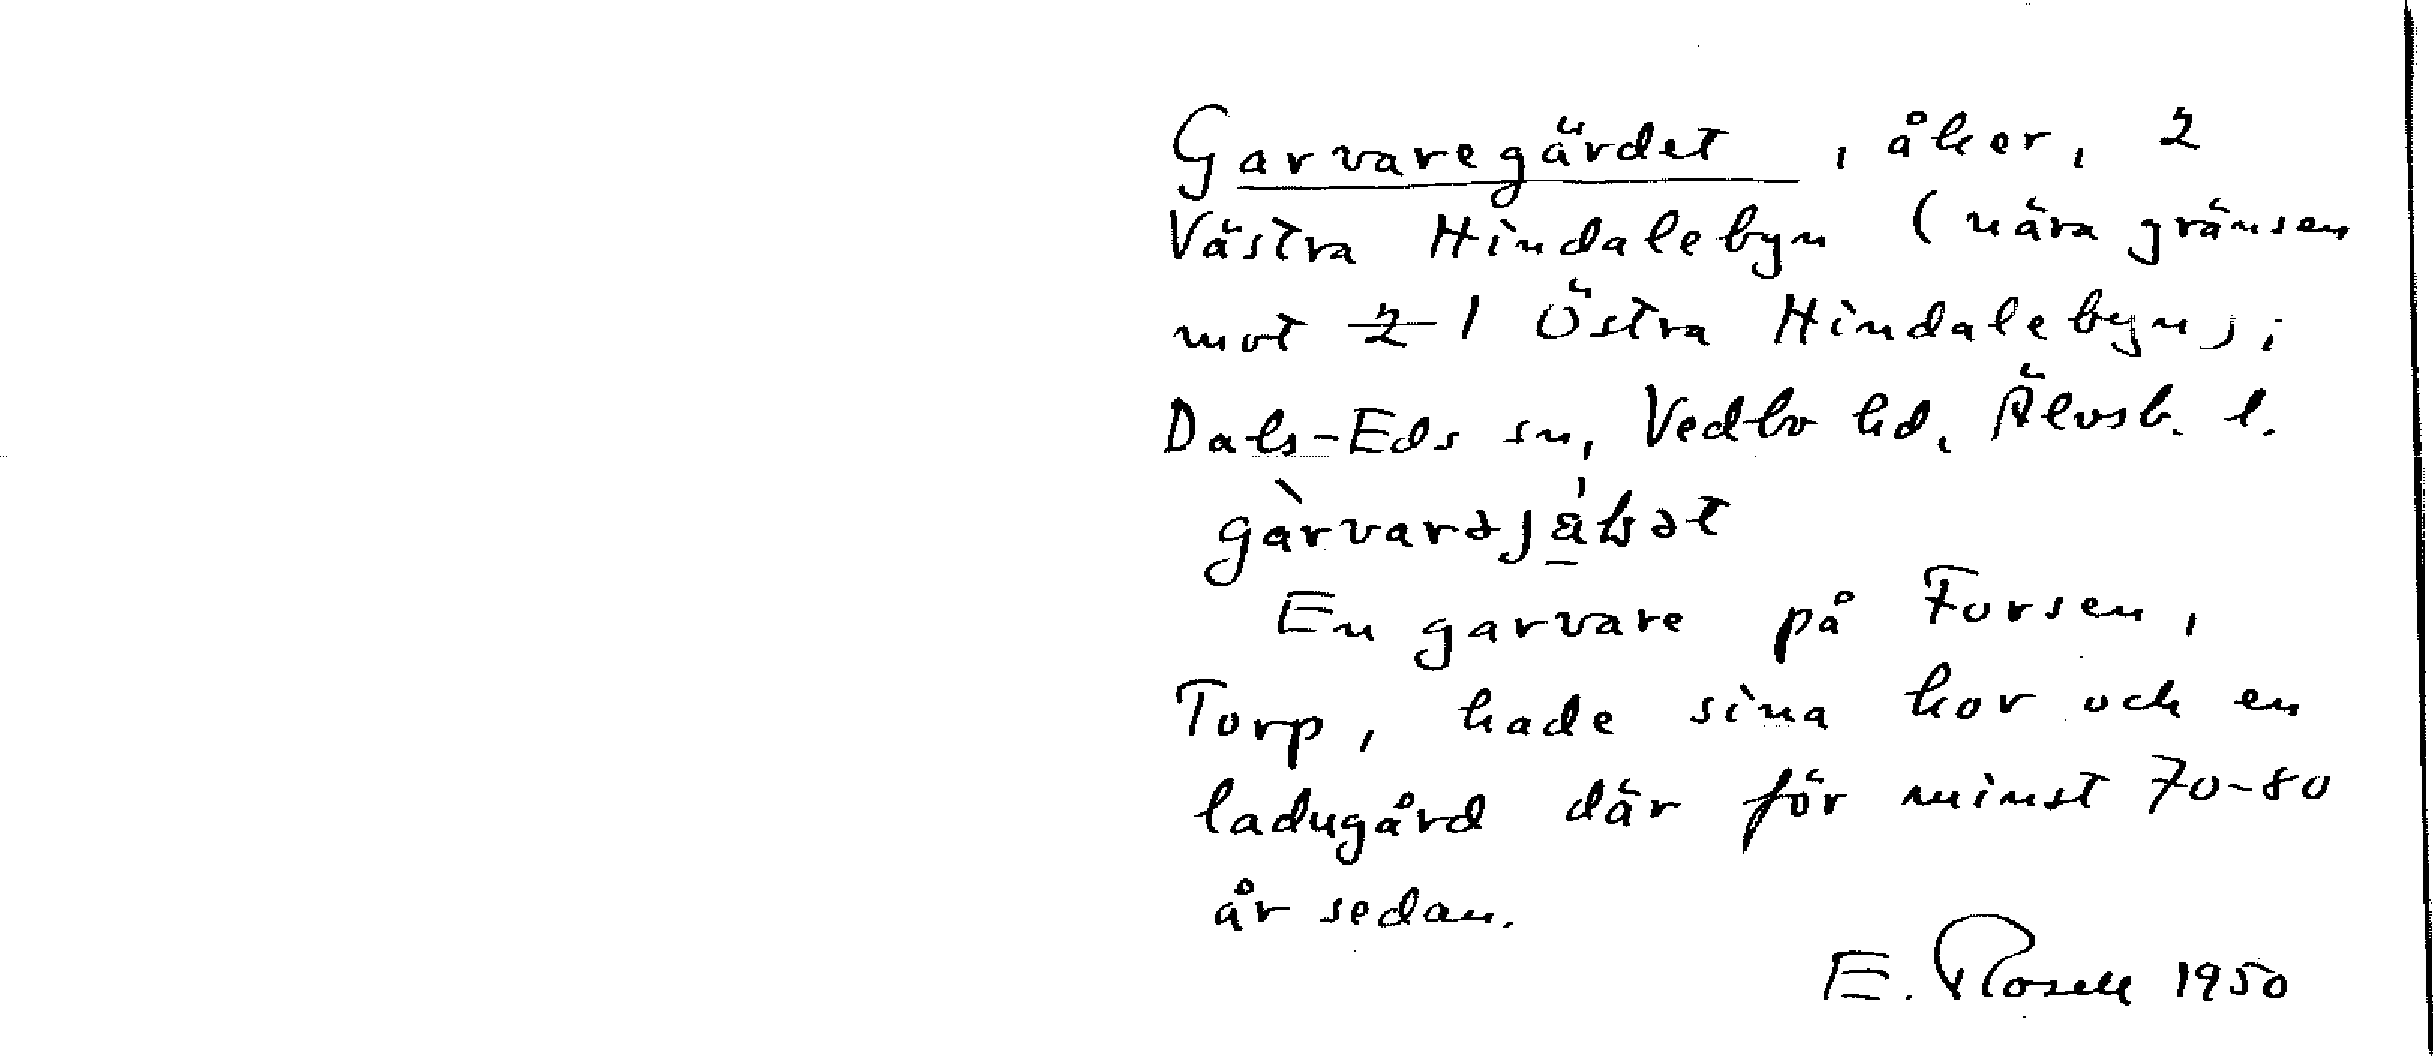 Garvaregärdet, åker, 2
Västra Hindalebyn (nära gränsen
mot 2 1 Östra Hindalebyn),
Dals-Eds sn, Vedbo hd, Älvsb. l.
En garvare på Forsen,
Torp, hade sina kor och en
ladugård där för minst 70-80
år sedan.
E. Rosell 1950